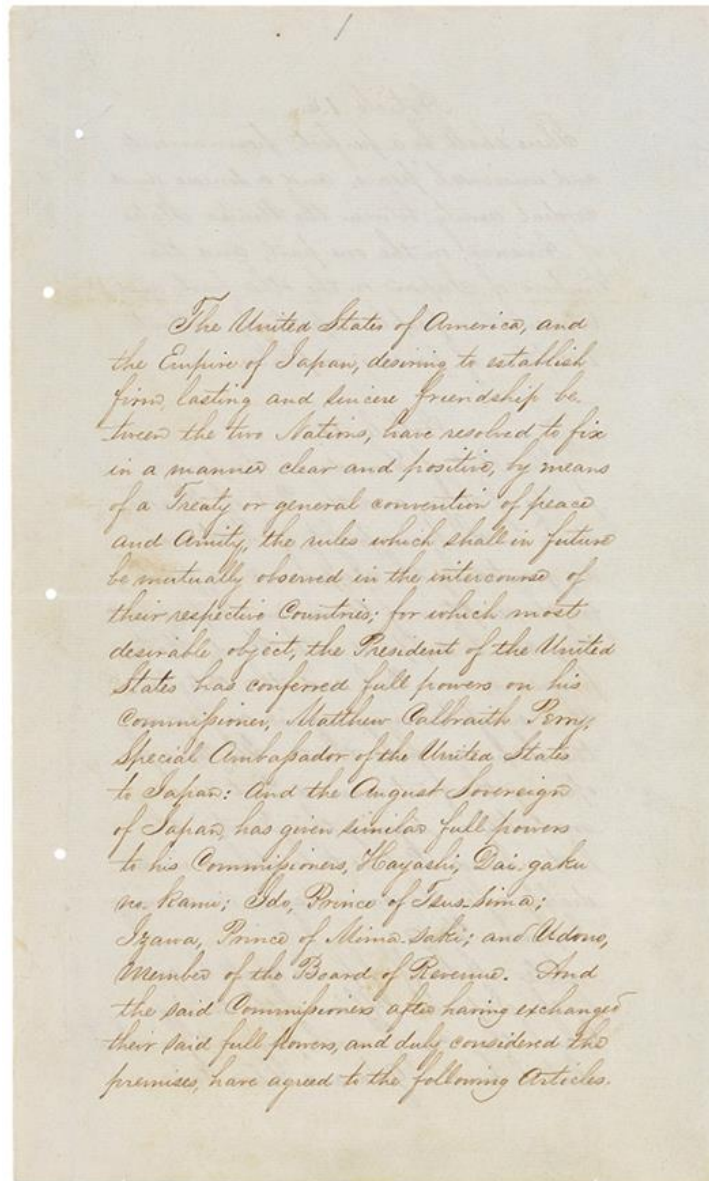 1
The United States of America, and
the Empire of Japan, desiring to establish
firm, lasting and sincere friendship be
tween the two Nations, have resolved to fix
in a manner clear and positive, by means
of a Treaty or general convention of peace
and Amity, the rules which shall in future
be mutually observed in the intercourse of
their respective Countries; for which most
desirable object, the President of the United
States has conferred full powers on his
Commissioner, Matthew Calbraith Perry,
Special Ambassador of the United States
to Japan: And the August Sovereign
of Japan, has given similar full powers
to his Commissioners, Hayashi, Dai-gaku
no-kami; Ido, Prince of Tsus-Sima;
Izawa, Prince of Mima-saki; and Udono,
Member of the Board of Revenue. And
the said Commissioners after having exchanged
their said full powers, and duly considered the
premises, have agreed to the following Articles.